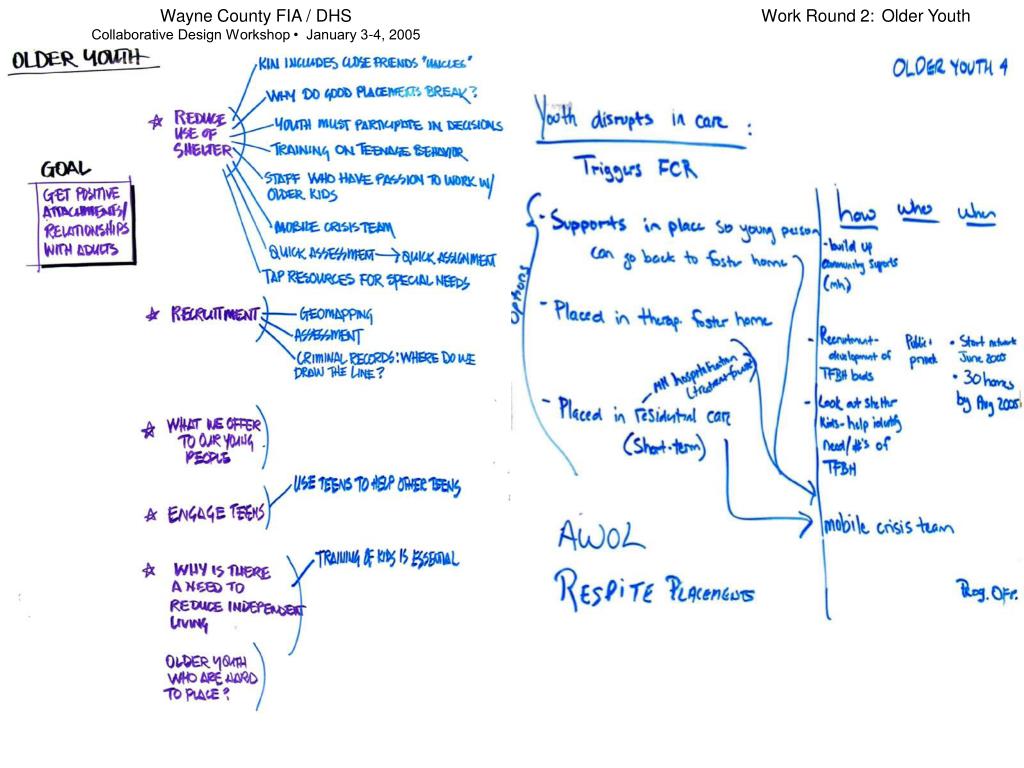 Wayne County FIA / DHS
Collaborative Design Workshop • January 3-4, 2005
Work Round 2: Older Youth
OLDER YOUTH
GOAL
GET POSITIVE
ATTACHMENTS/
RELATIONSHIPS
WITH ADULTS
REDUCE
USE OF
SHELTER
KIN INCLUDES CLOSE FRIENDS "UNCLES"
WHY DO GOOD PLACEMENTS BREAK?
YOUTH MUST PARTICIPATE IN DECISIONS
TRAINING ON TEENAGE BEHAVIOR
STAFF WHO HAVE PASSION TO WORK W/
OLDER KIDS
MOBILE CRISIS TEAM
QUICK ASSESSMENT → QUICK ASSIGNMENT
TAP RESOURCES FOR SPECIAL NEEDS
RECRUITMENT
GEOMAPPING
ASSESSMENT
CRIMINAL RECORDS: WHERE DO WE
DRAW THE LINE?
WHAT WE OFFER
TO OUR YOUNG
PEOPLE
ENGAGE TEENS
USE TEENS TO HELP OTHER TEENS
WHY IS THERE
A NEED TO
REDUCE INDEPENDENT
LIVING
TRAINING OF KIDS IS ESSENTIAL
OLDER YOUTH
WHO ARE HARD
TO PLACE?
OLDER YOUTH 4
Youth disrupts in care :
Triggers FCR
Options
- Supports in place so young person
can go back to foster home
- Placed in therap. foster home
MH hospitalization
- Placed in residential care
(Short-term)
AWOL
RESPITE PLACEMENTS
how who when
- build up
community supports
(mh)
- Recruitment-
development of
TFBH beds
Public +
privat
• Start network
June 2005
• 30 homes
by Aug 2005
- Look at shelter
kids- help identify
need/#'s of
TFBH
mobile crisis team
Prog. Off.